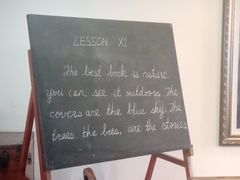 LESSON XI
The best book is nature.
you can see it outdoors. The
covers are the blue sky. The
trees, the bees, are the stories